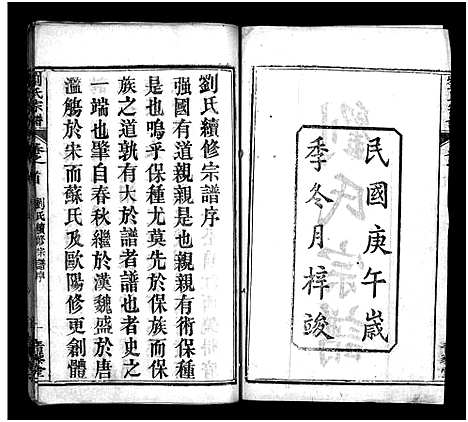 民國庚午歲
季冬月梓竣
劉氏續修宗譜序
强國有術保種是也保種有
道親親是也親親
是也嗚乎保種尤莫先於保族而保
族之道孰有大於譜者譜也者史之
一端也肇自春秋繼於漢魏盛於唐
濫觴於宋而蘇氏及歐陽修更創體
劉氏宗譜
卷之首
劉氏續修宗譜序
一